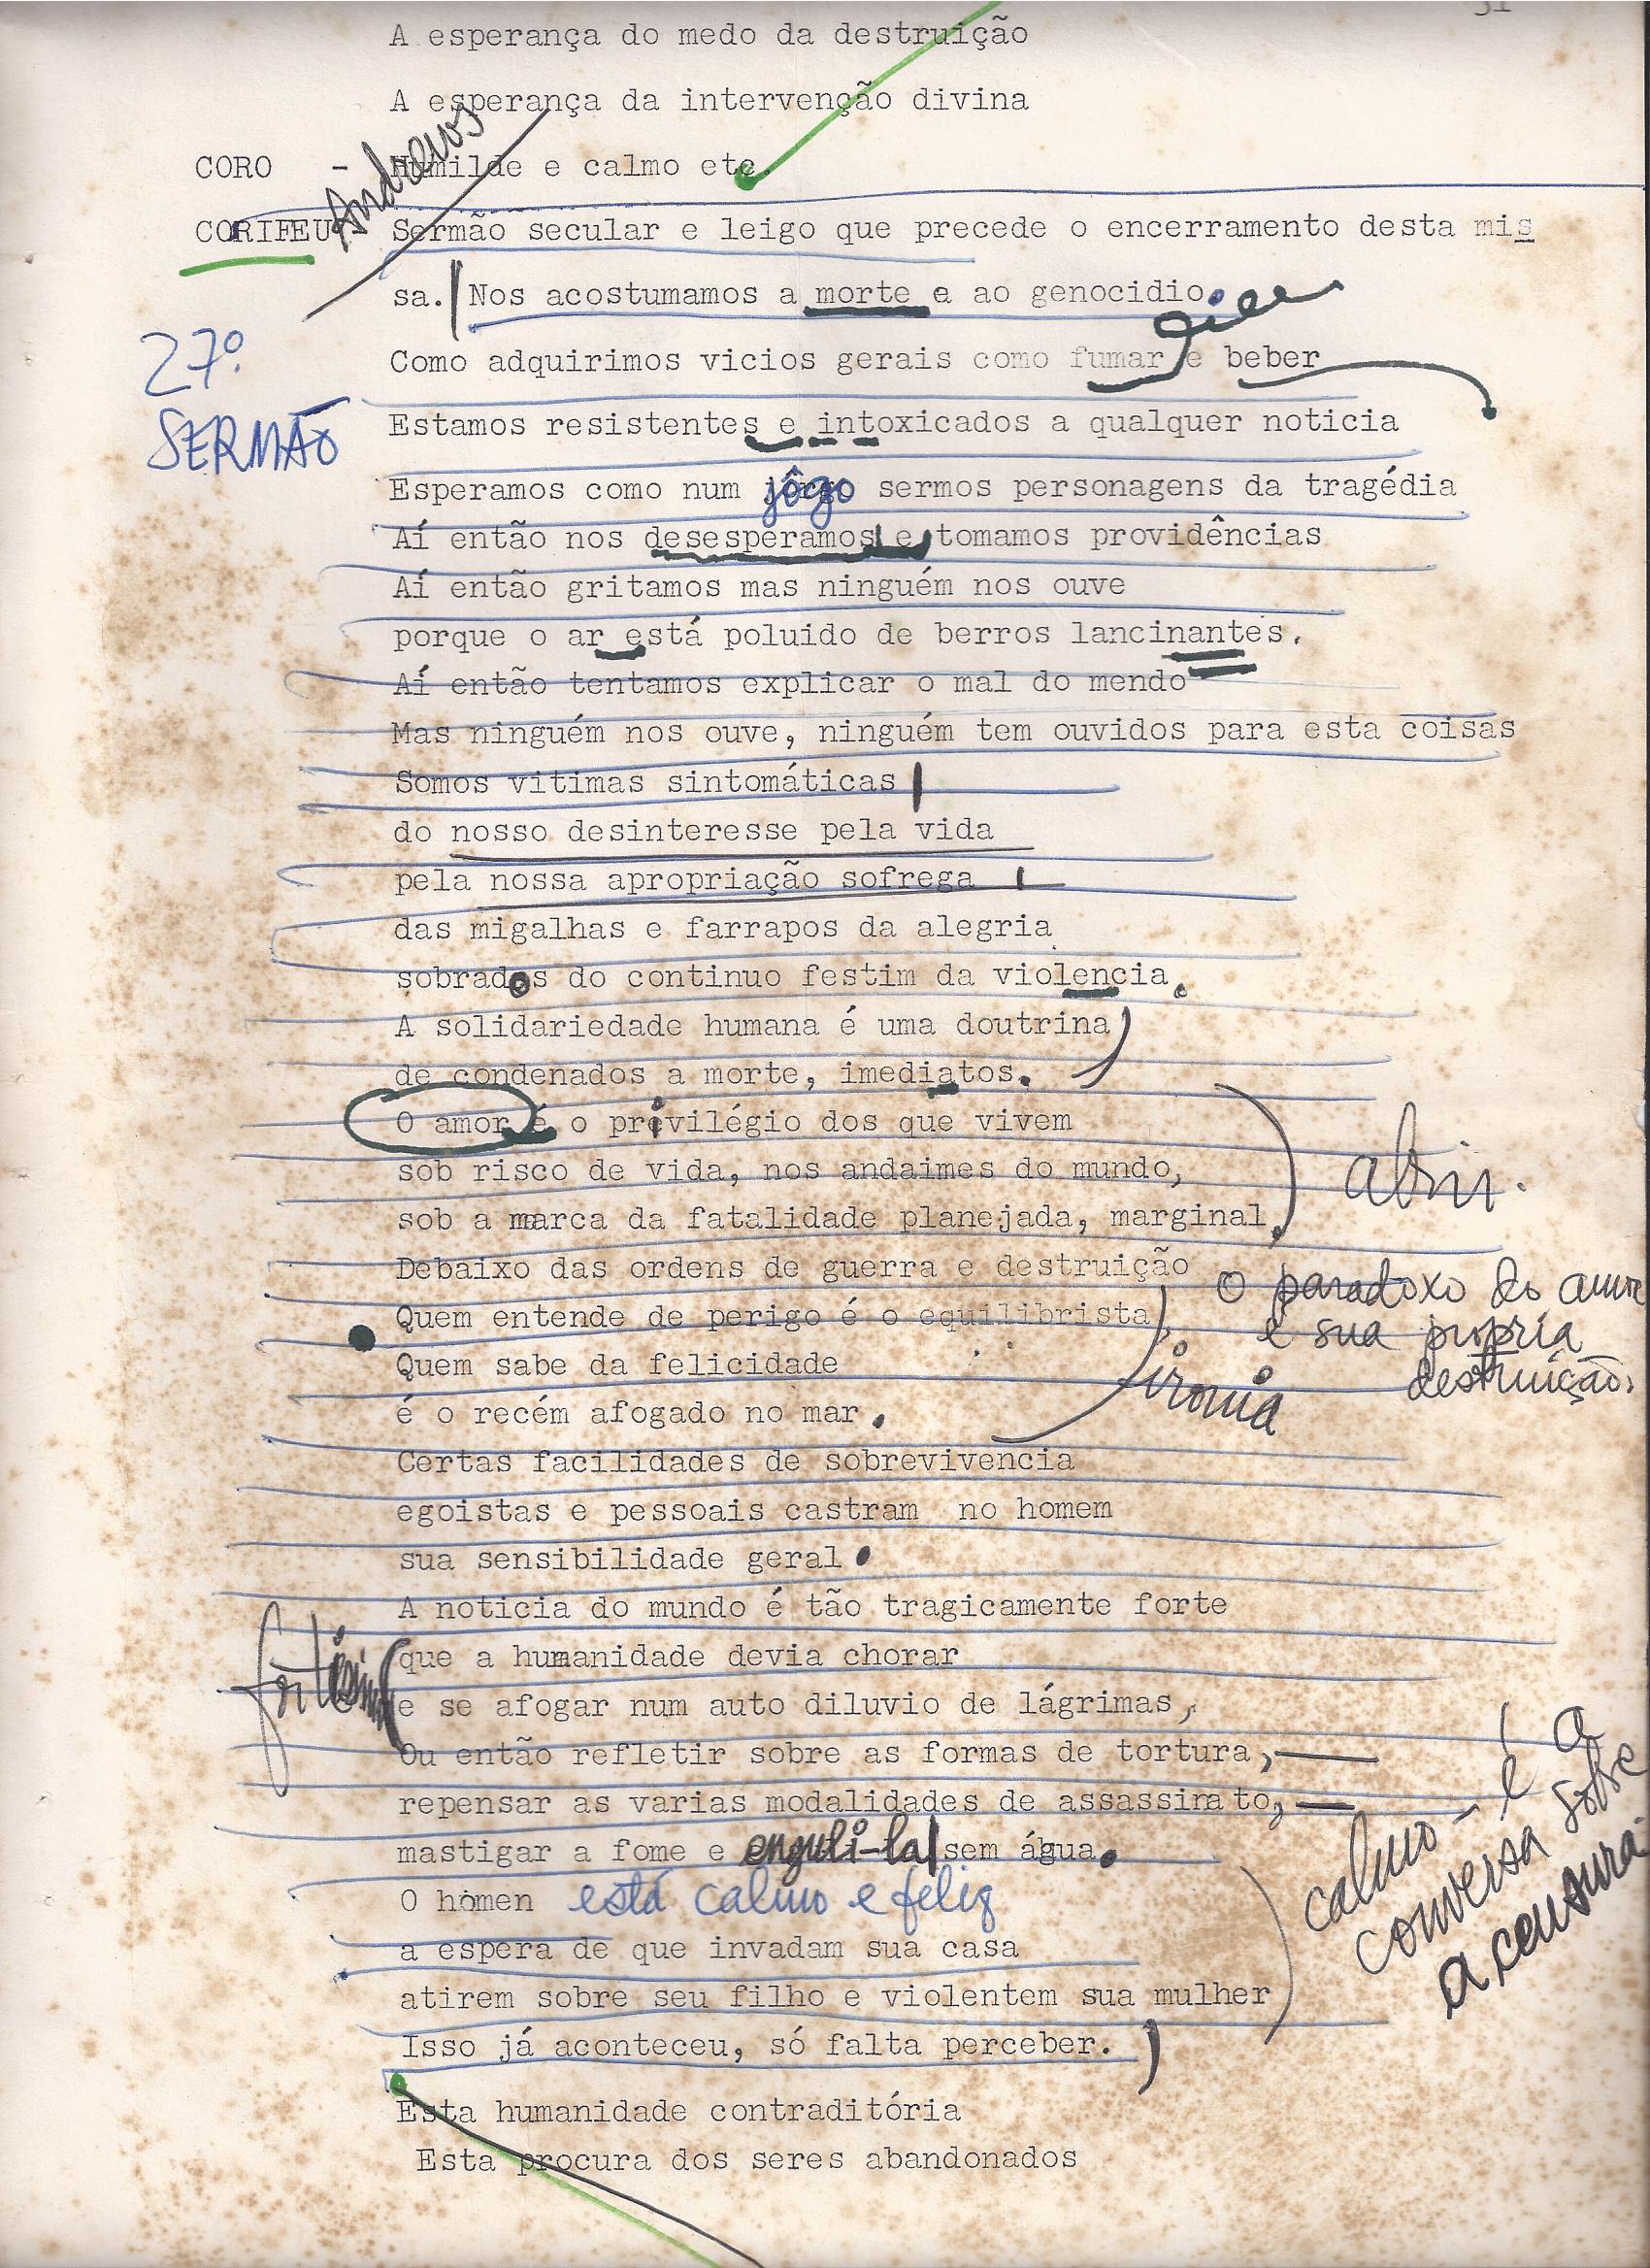 A esperança do medo da destruição
A esperança da intervenção divina
CORO - Humilde e calmo etc.
Andrews
CORIFEU - Sermão secular e leigo que precede o encerramento desta mis
sa. Nos acostumamos a morte e ao genocidio.
27º
SERMÃO
Como adquirimos vicios gerais como fumar e beber
Estamos resistentes e intoxicados a qualquer noticia
Esperamos como num jôgo sermos personagens da tragédia
Aí então nos desesperamos e tomamos providências
Aí então gritamos mas ninguém nos ouve
porque o ar está poluido de berros lancinantes.
Aí então tentamos explicar o mal do mendo
Mas ninguém nos ouve, ninguém tem ouvidos para esta coisas
Somos vitimas sintomáticas
do nosso desinteresse pela vida
pela nossa apropriação sofrega
das migalhas e farrapos da alegria
sobrados do continuo festim da violencia.
A solidariedade humana é uma doutrina
de condenados a morte, imediatos.
O amor é o privilégio dos que vivem
sob risco de vida, nos andaimes do mundo,
abrir.
sob a marca da fatalidade planejada, marginal,
Debaixo das ordens de guerra e destruição
O paradoxo do amor
é sua propria
destruição.
Quem entende de perigo é o equilibrista,
Quem sabe da felicidade
ironia
é o recém afogado no mar.
Certas facilidades de sobrevivencia
egoistas e pessoais castram no homem
sua sensibilidade geral.
A noticia do mundo é tão tragicamente forte
que a humanidade devia chorar
fortissimo
e se afogar num auto diluvio de lágrimas,
Ou então refletir sobre as formas de tortura,
repensar as varias modalidades de assassinato,
mastigar a fome e enguli-la sem água.
calmo - é a
conversa sobre
a censura.
O homen está calmo e feliz
a espera de que invadam sua casa
atirem sobre seu filho e violentem sua mulher
Isso já aconteceu, só falta perceber.
Esta humanidade contraditória
Esta procura dos seres abandonados